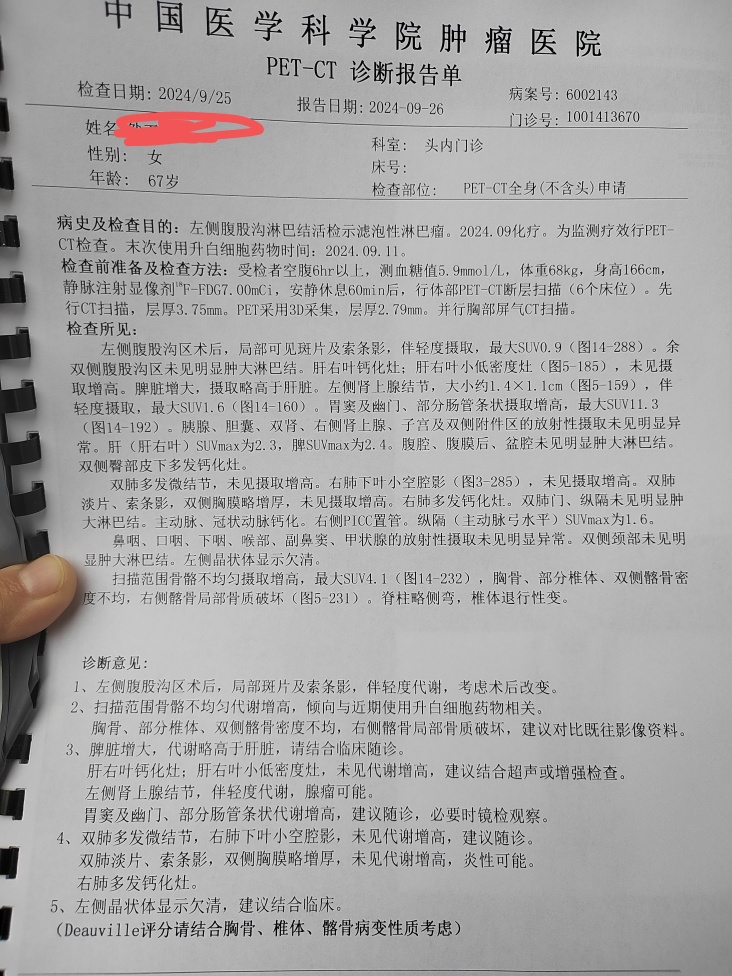 中国医学科学院肿瘤医院
PET-CT 诊断报告单
检查日期: 2024/9/25
报告日期: 2024-09-26
病案号: 6002143
门诊号: 1001413670
姓名
性别: 女
年龄: 67岁
科室: 头内门诊
床号:
检查部位: PET-CT全身(不含头)申请
病史及检查目的: 左侧腹股沟淋巴结活检示滤泡性淋巴瘤。2024.09化疗。为监测疗效行PET-
CT检查。末次使用升白细胞药物时间: 2024.09.11。
检查前准备及检查方法: 受检者空腹6hr以上, 测血糖值5.9mmol/L, 体重68kg, 身高166cm,
静脉注射显像剂¹⁸F-FDG7.00mCi, 安静休息60min后, 行体部PET-CT断层扫描 (6个床位) 。先
行CT扫描, 层厚3.75mm。PET采用3D采集, 层厚2.79mm。并行胸部屏气CT扫描。
检查所见:
左侧腹股沟区术后, 局部可见斑片及索条影, 伴轻度摄取, 最大SUV0.9 (图14-288) 。余
双侧腹股沟区未见明显肿大淋巴结。肝右叶钙化灶; 肝右叶小低密度灶 (图5-185) , 未见摄
取增高。脾脏增大, 摄取略高于肝脏。左侧肾上腺结节, 大小约1.4×1.1cm (图5-159) , 伴
轻度摄取, 最大SUV1.6 (图14-160) 。胃窦及幽门、部分肠管条状摄取增高, 最大SUV11.3
(图14-192) 。胰腺、胆囊、双肾、右侧肾上腺、子宫及双侧附件区的放射性摄取未见明显异
常。肝 (肝右叶) SUVmax为2.3, 脾SUVmax为2.4。腹腔、腹膜后、盆腔未见明显肿大淋巴结。
双侧臀部皮下多发钙化灶。
双肺多发微结节, 未见摄取增高。右肺下叶小空腔影 (图3-285) , 未见摄取增高。双肺
淡片、索条影, 双侧胸膜略增厚, 未见摄取增高。右肺多发钙化灶。双肺门、纵隔未见明显肿
大淋巴结。主动脉、冠状动脉钙化。右侧PICC置管。纵隔 (主动脉弓水平) SUVmax为1.6。
鼻咽、口咽、下咽、喉部、副鼻窦、甲状腺的放射性摄取未见明显异常。双侧颈部未见明
显肿大淋巴结。左侧晶状体显示欠清。
扫描范围骨骼不均匀摄取增高, 最大SUV4.1 (图14-232) , 胸骨、部分椎体、双侧髂骨密
度不均, 右侧髂骨局部骨质破坏 (图5-231) 。脊柱略侧弯, 椎体退行性变。
诊断意见:
1、左侧腹股沟区术后, 局部斑片及索条影, 伴轻度代谢, 考虑术后改变。
2、扫描范围骨骼不均匀代谢增高, 倾向与近期使用升白细胞药物相关。
胸骨、部分椎体、双侧髂骨密度不均, 右侧髂骨局部骨质破坏, 建议对比既往影像资料。
3、脾脏增大, 代谢略高于肝脏, 请结合临床随诊。
肝右叶钙化灶; 肝右叶小低密度灶, 未见代谢增高, 建议结合超声或增强检查。
左侧肾上腺结节, 伴轻度代谢, 腺瘤可能。
胃窦及幽门、部分肠管条状代谢增高, 建议随诊, 必要时镜检观察。
4、双肺多发微结节, 右肺下叶小空腔影, 未见代谢增高, 建议随诊。
双肺淡片、索条影, 双侧胸膜略增厚, 未见代谢增高, 炎性可能。
右肺多发钙化灶。
5、左侧晶状体显示欠清, 建议结合临床。
(Deauville评分请结合胸骨、椎体、髂骨病变性质考虑)